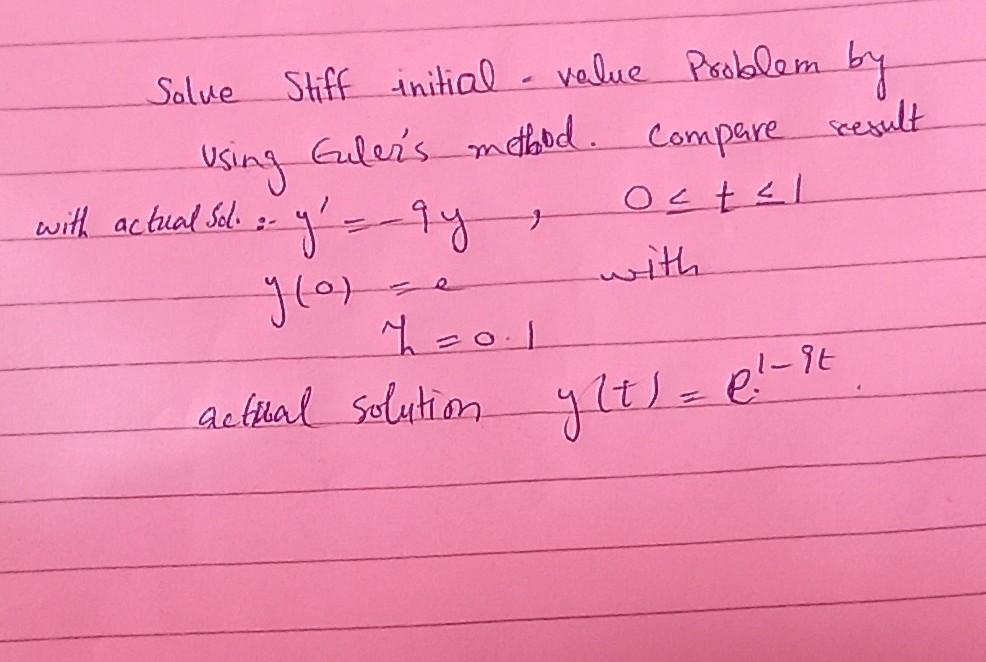 Solve Stiff initial - value Problem by
Using Euler's method. Compare result
with actual Sol. :- y' = -9y , 0 ≤ t ≤ 1
y(0) = e with
h = 0.1
actual solution y(t) = e^{1-9t}.